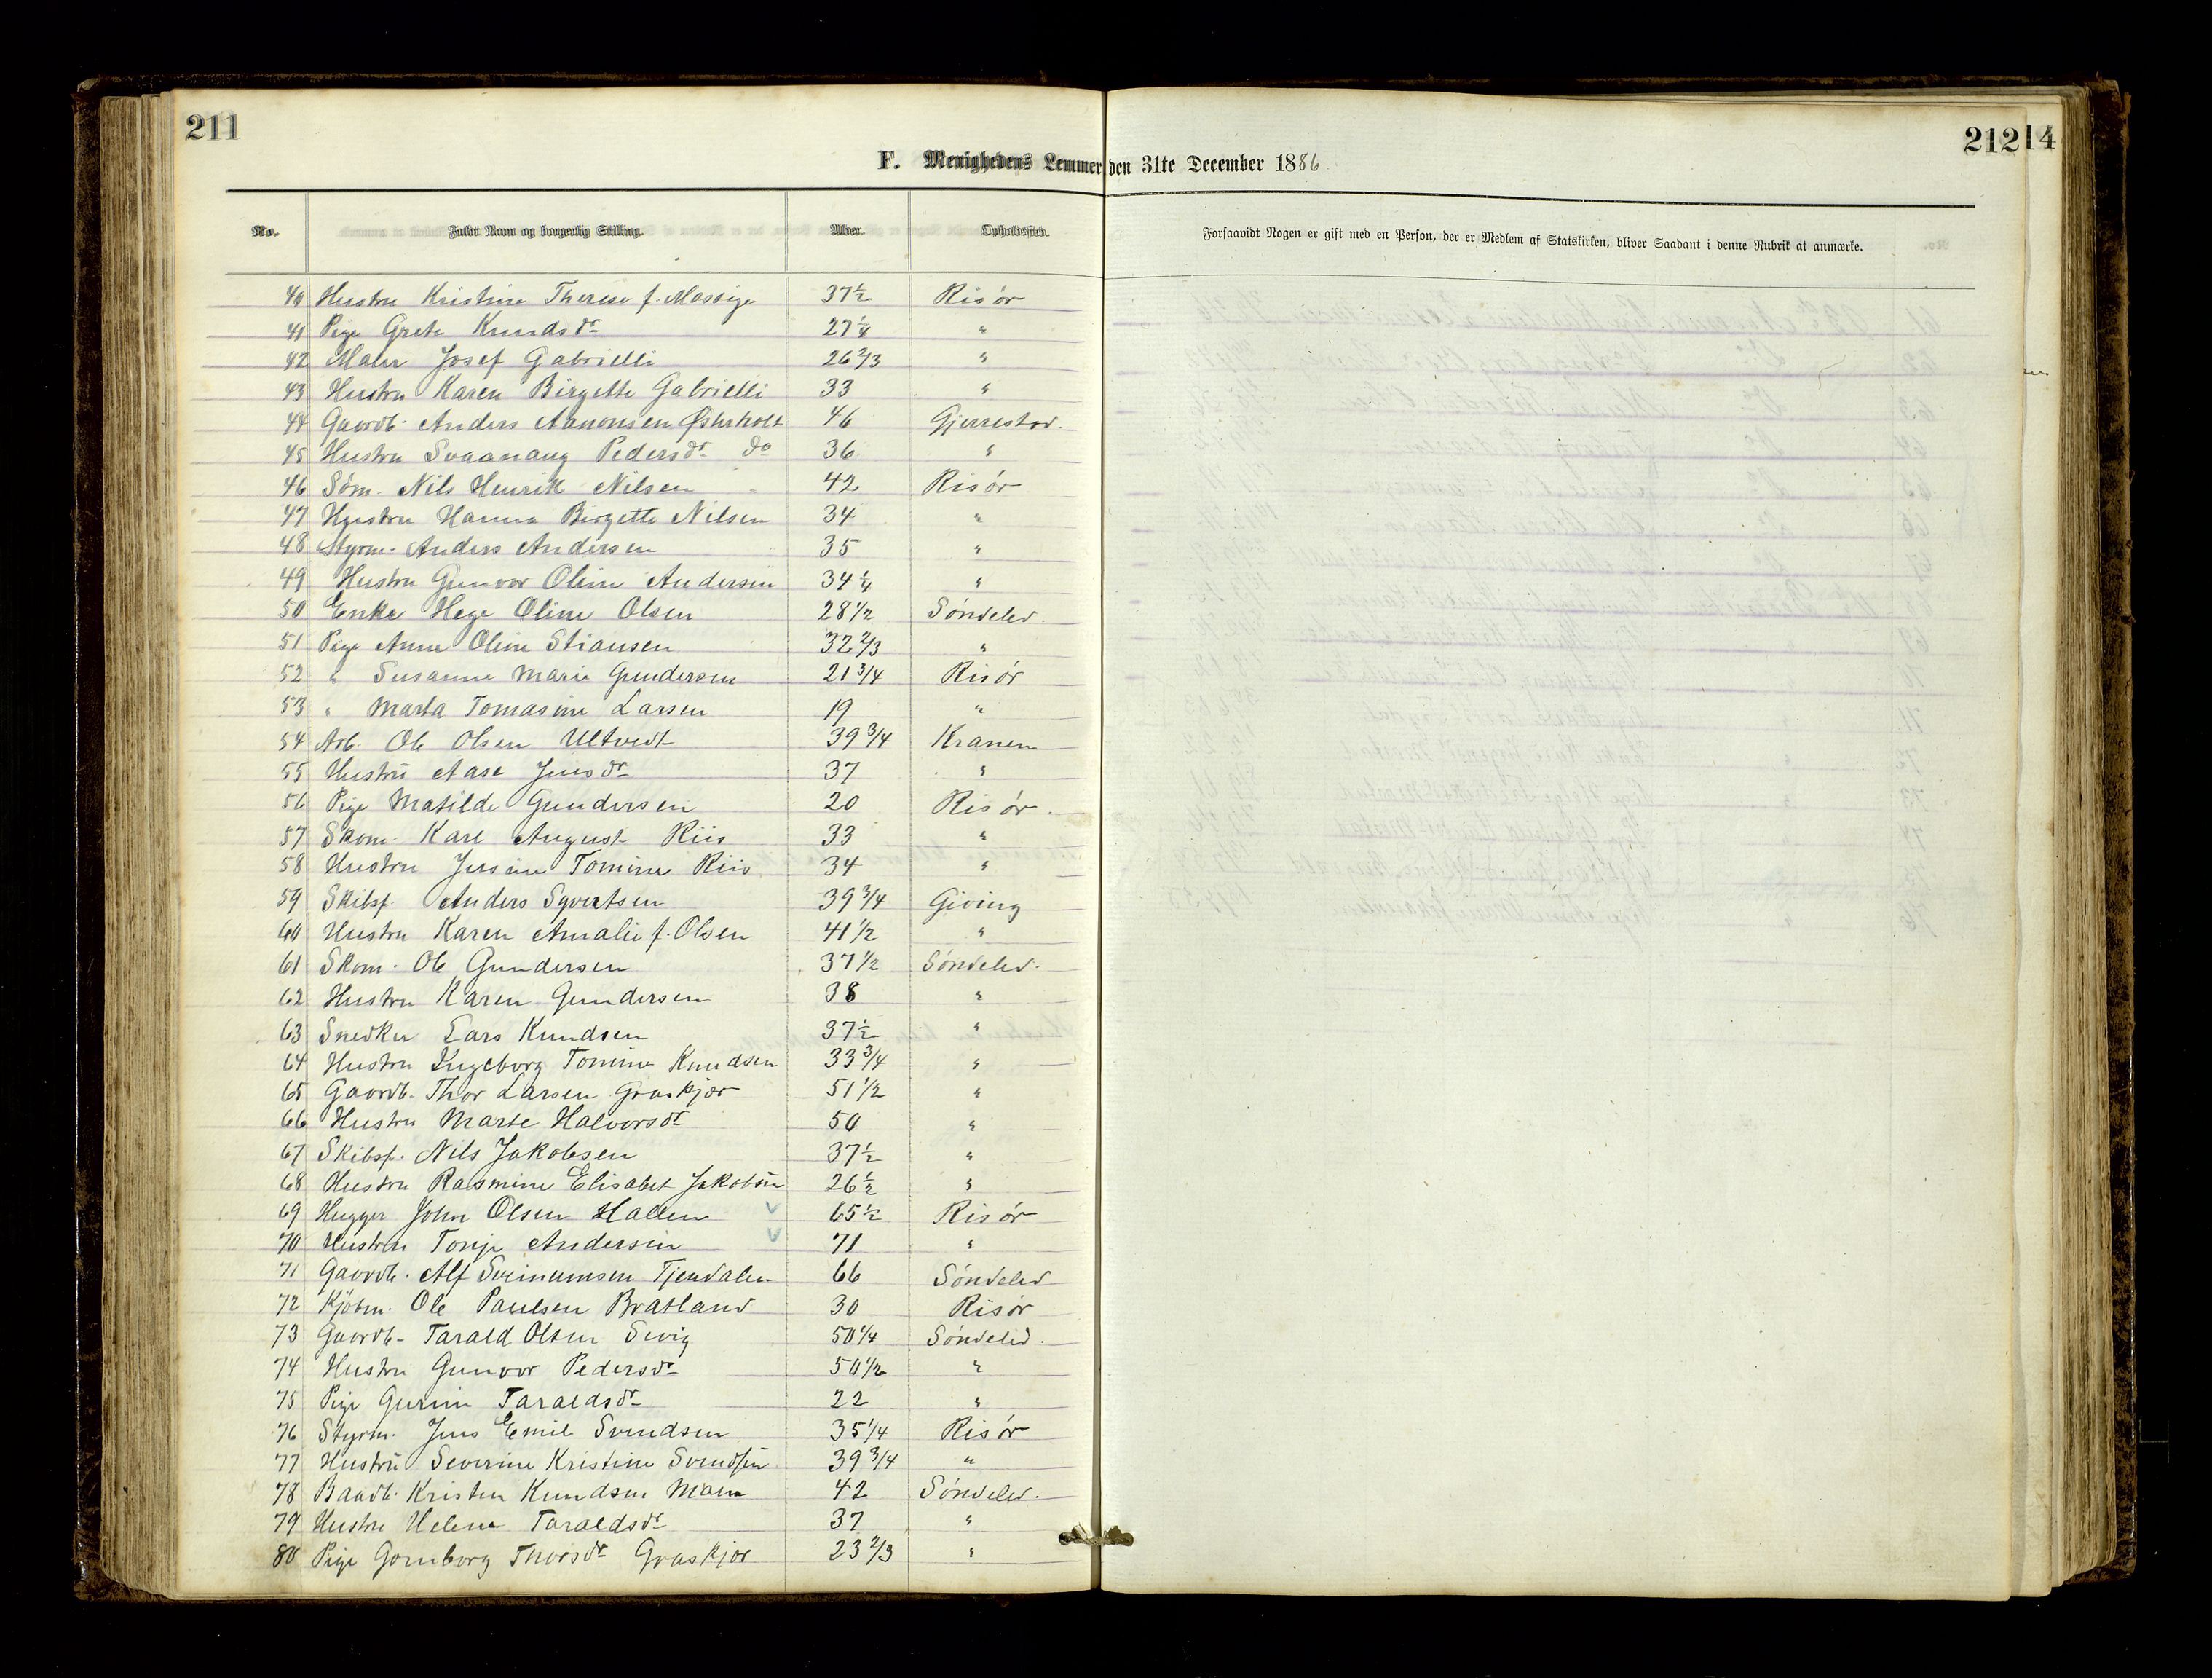 211
21214
F. Menighedens Lemmer den 31te December 1886
No. Fuldt Navn og borgerlig Stilling. Alder. Opholdssted. Forsaavidt Nogen er gift med en Person, der er Medlem af Statskirken, bliver Saadant i denne Rubrik at anmærke.
40 Hustru Kristine Therese f. Mossige 37½ Risør
41 Pige Grete Knudsdr 27¼ "
42 Maler Josef Gabrielli 26 2/3 "
43 Hustru Karen Birgette Gabrielli 33 "
44 Gaardb. Anders Aanonsen Østerholt 46 Gjerrestad.
45 Hustru Svaanaug Pedersdr do 36 "
46 Søm. Nils Henrik Nilsen 42 Risør
47 Hustru Hanna Birgette Nilsen 34 "
48 Styrm. Anders Andersen 35 "
49 Hustru Gunvor Oline Andersen 34¼ "
50 Enke Hege Oline Olsen 28 1/2 Søndeled.
51 Pige Anne Oline Stiansen 32 2/3 "
52 " Susanne Marie Gundersen 21 3/4 Risør
53 " Marta Tomasine Larsen 19 "
54 Arb. Ole Olsen Ultvedt 39 3/4 Kranen
55 Hustru Aase Jensdr 37 "
56 Pige Matilde Gundersen 20 Risør.
57 Skom. Karl August Riis 33 "
58 Hustru Jensine Tomine Riis 34 "
59 Skibsf. Anders Syvertsen 39 3/4 Giving
60 Hustru Karen Amalie f. Olsen 41 1/2 "
61 Skom. Ole Gundersen 37 1/2 Søndeled.
62 Hustru Karen Gundersen 38 "
63 Snedker Lars Knudsen 37½ "
64 Hustru Ingeborg Tomine Knudsen 33 3/4 "
65 Gaardb. Thor Larsen Graskjær 51 1/2 "
66 Hustru Marte Halvorsdr 50 "
67 Skibsf. Nils Jakobsen 37½ "
68 Hustru Rasmine Elisabet Jakobsen 26½ "
69 Hugger John Olsen Hallen 65½ Risør
70 Hustru Tonje Andersen 71 "
71 Gaardb. Alf Svenumsen Tjendalen 66 Søndeled
72 Kjøbm. Ole Paulsen Bratland 30 Risør
73 Gaardb. Tarald Olsen Sevig 50 1/4 Søndeled.
74 Hustru Gunvor Pedersdr 50 1/2 "
75 Pige Gurine Taraldsdr 22 "
76 Styrm. Jens Emil Svendsen 35 1/4 Risør
77 Hustru Severine Kristine Svendsen 39 3/4 "
78 Baadb. Kristen Knudsen Moen 42 Søndeled.
79 Hustru Helene Taraldsdr 37 "
80 Pige Gomborg Thorsdr Graskjær 23 2/3 "